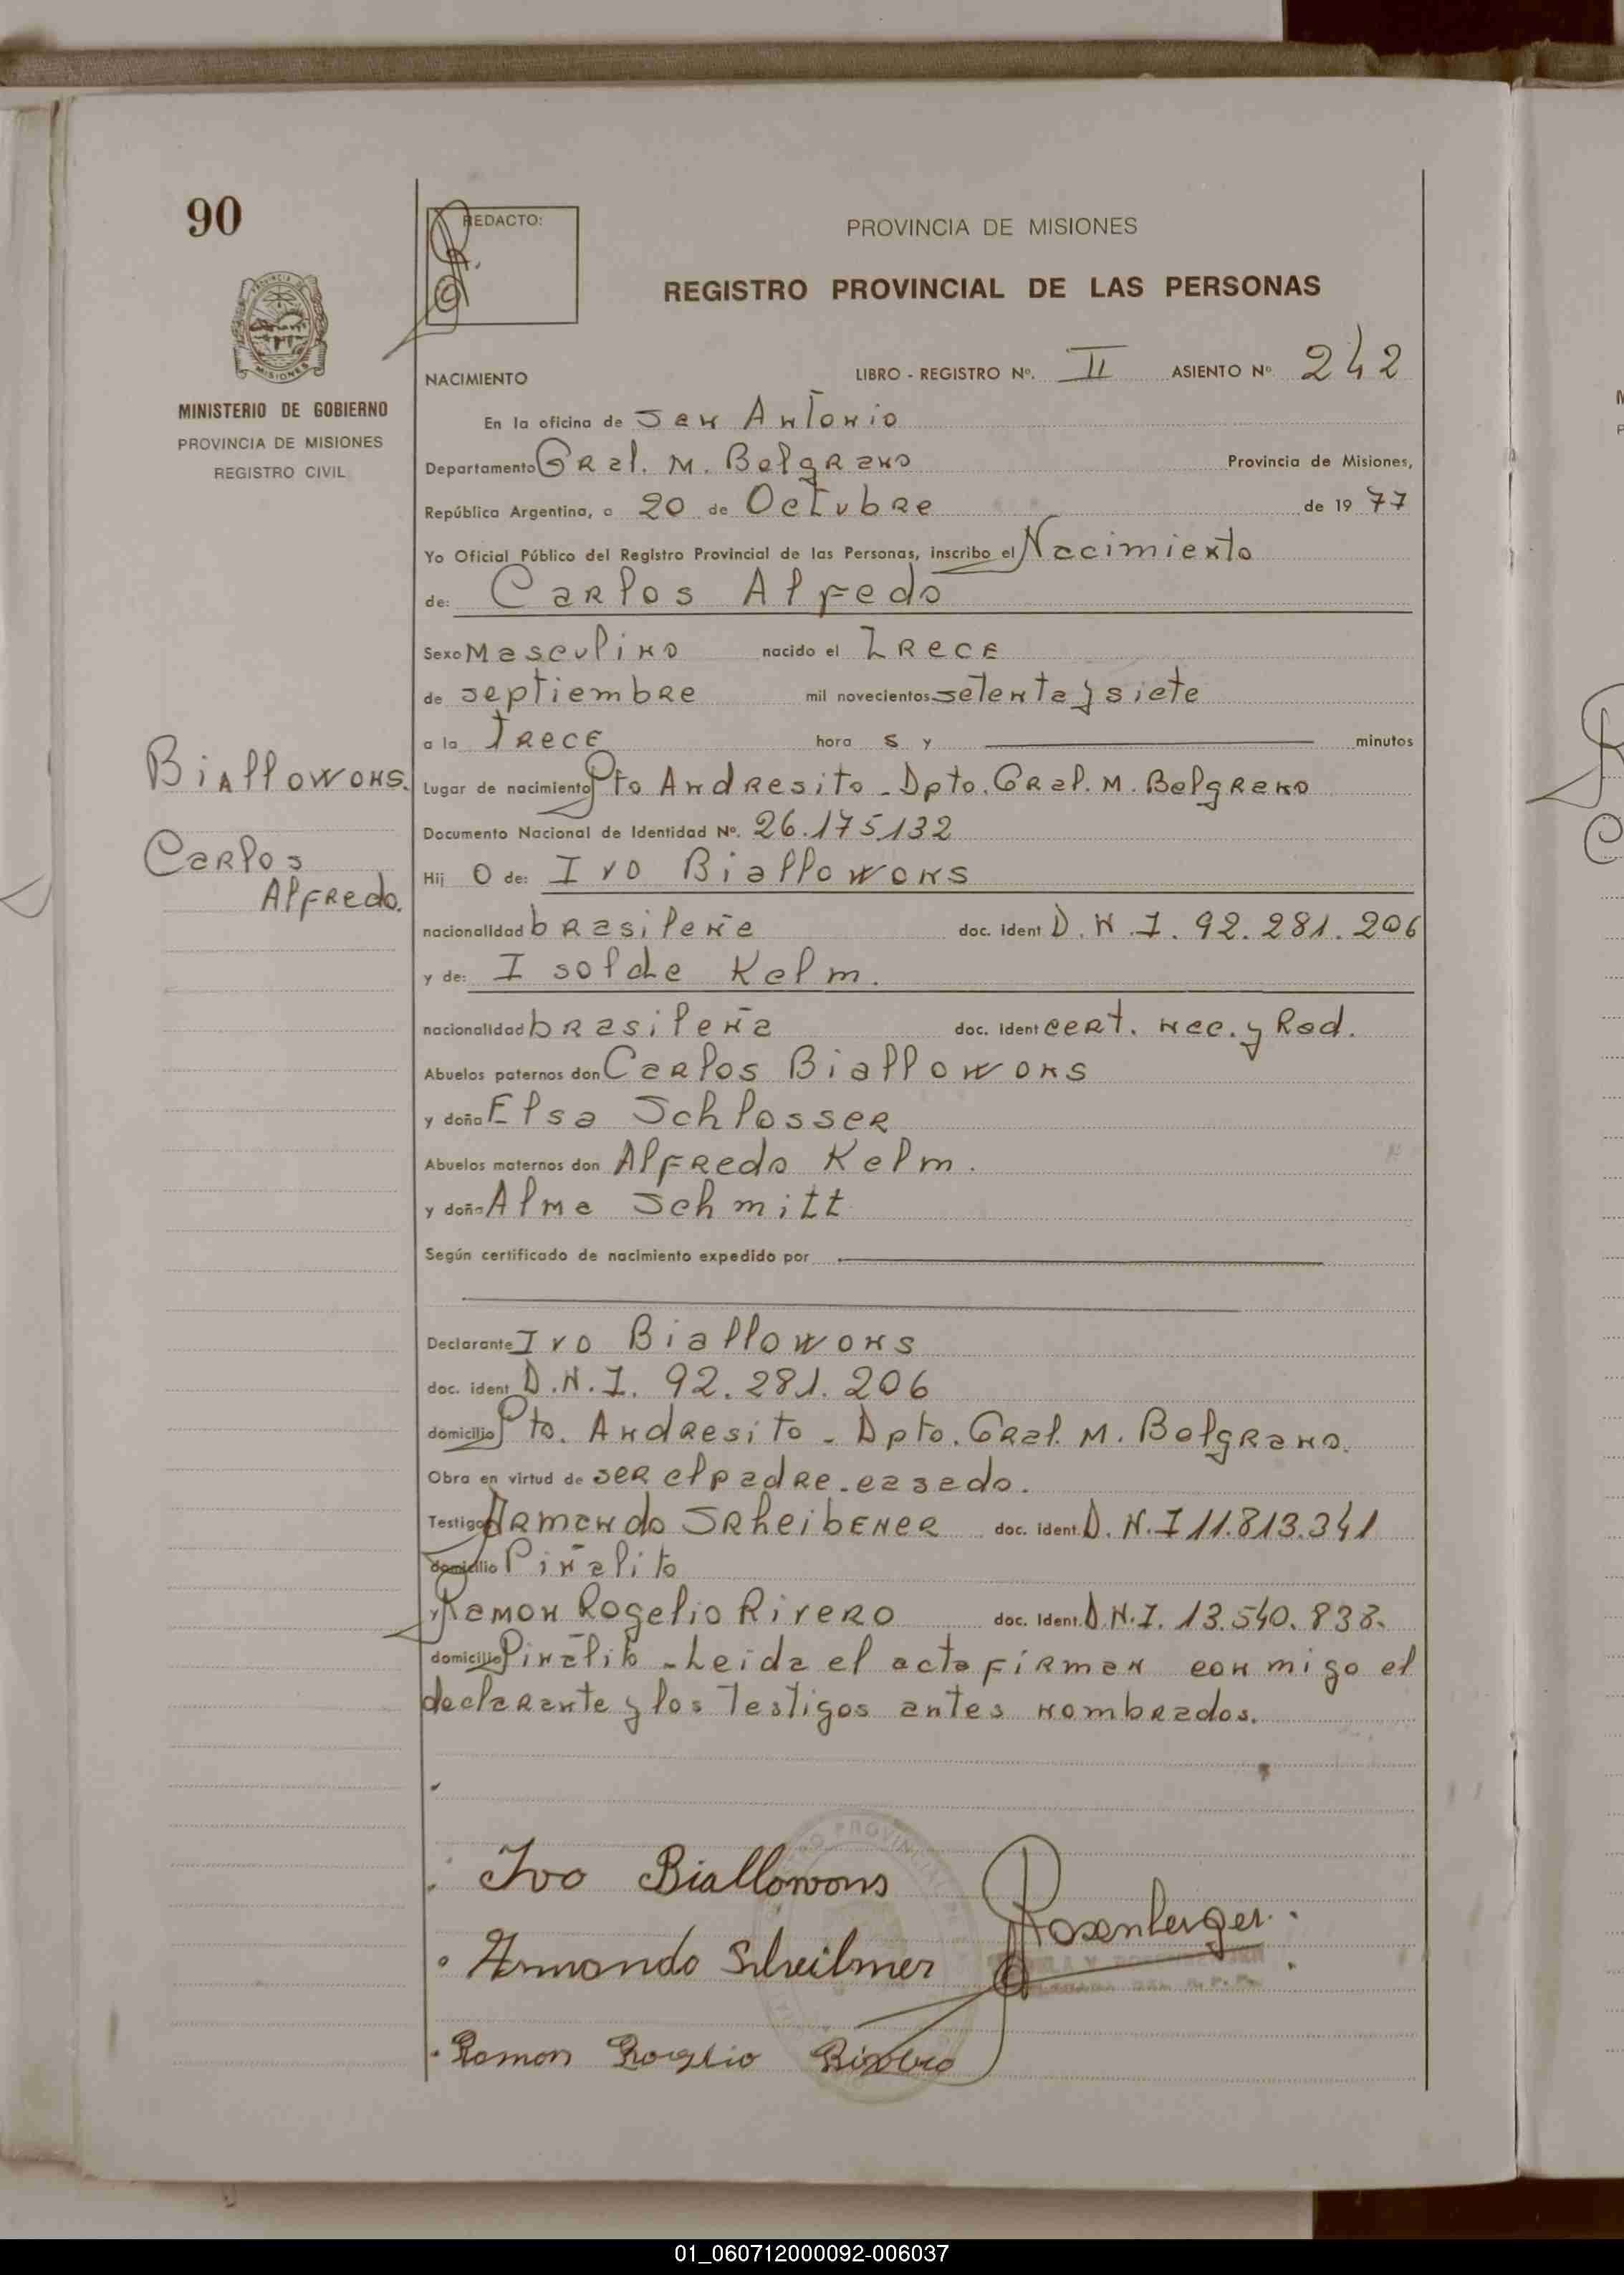 90
REDACTO:
PROVINCIA DE MISIONES
REGISTRO PROVINCIAL DE LAS PERSONAS
MINISTERIO DE GOBIERNO
PROVINCIA DE MISIONES
REGISTRO CIVIL
NACIMIENTO LIBRO - REGISTRO Nº. II ASIENTO Nº 242
En la oficina de San Antonio
Departamento Gral. M. Belgrano Provincia de Misiones,
República Argentina, a 20 de Octubre de 1977
Yo Oficial Público del Registro Provincial de las Personas, inscribo el Nacimiento
de: Carlos Alfedo
Sexo Masculino nacido el Trece
de septiembre mil novecientos setenta y siete
a la Trece hora s y minutos
Biallowons.
Lugar de nacimiento Pto Andresito - Dpto. Gral. M. Belgrano
Documento Nacional de Identidad Nº. 26.175.132
Carlos
Alfredo.
Hij o de: Ivo Biallowons
nacionalidad brasileña doc. ident D.N.I. 92.281.206
y de: Isolde Kelm.
nacionalidad brasileña doc. ident cert. nac. y Rad.
Abuelos paternos don Carlos Biallowons
y doña Elsa Schlosser
Abuelos maternos don Alfredo Kelm.
y doña Alma Schmitt
Según certificado de nacimiento expedido por
Declarante Ivo Biallowons
doc. ident D.N.I. 92.281.206
domicilio Pto. Andresito - Dpto. Gral. M. Belgrano.
Obra en virtud de ser el padre - casado.
Testigos Armando Scheibener doc. ident. D.N.I 11.813.341
domicilio Piñalito
y Ramon Rogelio Rivero doc. Ident. D.N.I. 13.540.838.
domicilio Piñalito - Leida el acta firman conmigo el
declarante y los Testigos antes nombrados.
Ivo Biallowons
Rosenberger
Armando Scheibner
Ramon Roglio Rivero
01_060712000092-006037